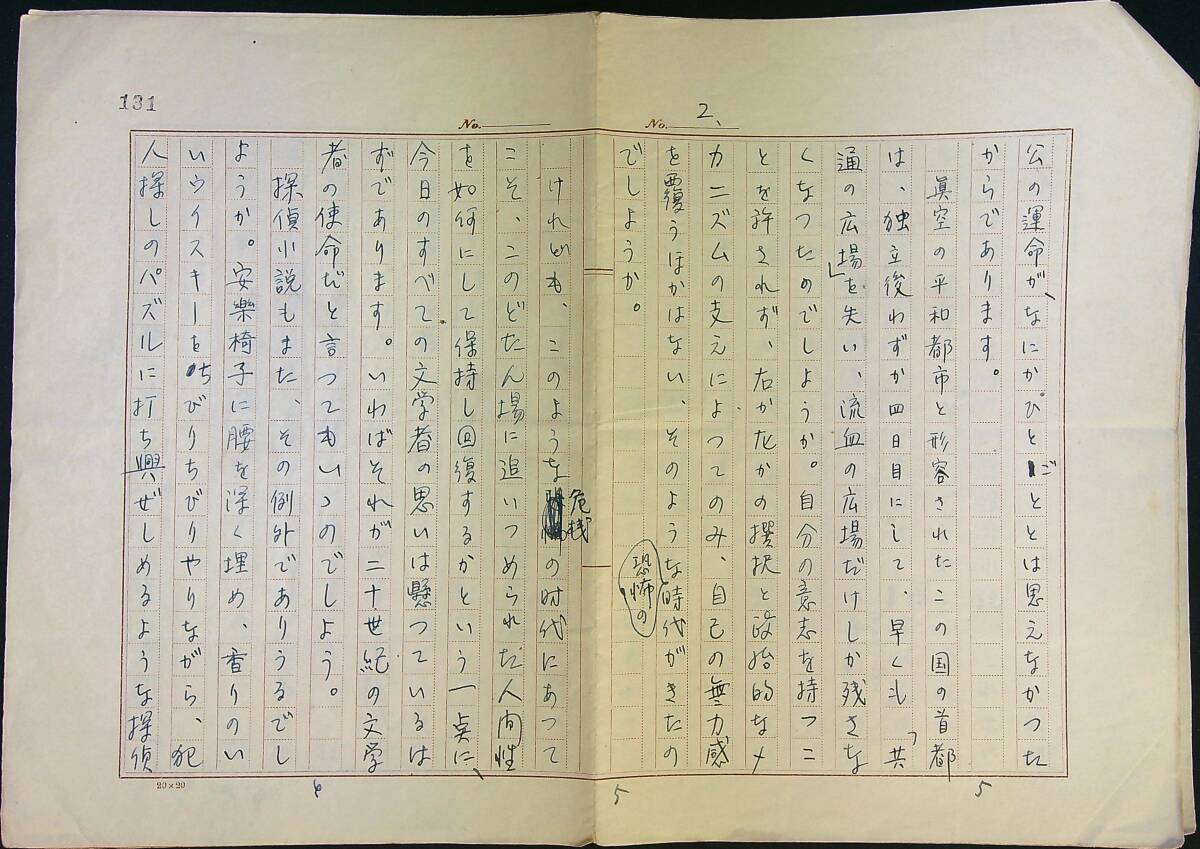 2、
No.
公の運命が、なにかひとごととは思えなかつた
からであります。
眞空の平和都市と形容されたこの国の首都
は、独立後わずか四日目にして、早くも「共
通の広場」を失い、流血の広場だけしか残さな
くなつたのでしようか。自分の意志を持つこ
とを許されず、右か左かの撰択と政治的なメ
カニズムの支えによつてのみ、自己の無力感
を覆うほかはない、そのような時代がきたの
恐怖の
でしようか。
5
5
131
No.
けれども、このような危機の時代にあつて
こそ、このどたん場に追いつめられた人間性
を如何にして保持し回復するかという一点に、
今日のすべての文学者の思いは懸つているは
ずであります。いわばそれが二十世紀の文学
者の使命だと言つてもいゝのでしよう。
探偵小説もまた、その例外でありうるでし
ようか。安樂椅子に腰を深く埋め、香りのい
いウイスキーをちびりちびりやりながら、犯
人探しのパズルに打ち興ぜしめるような探偵
20×20